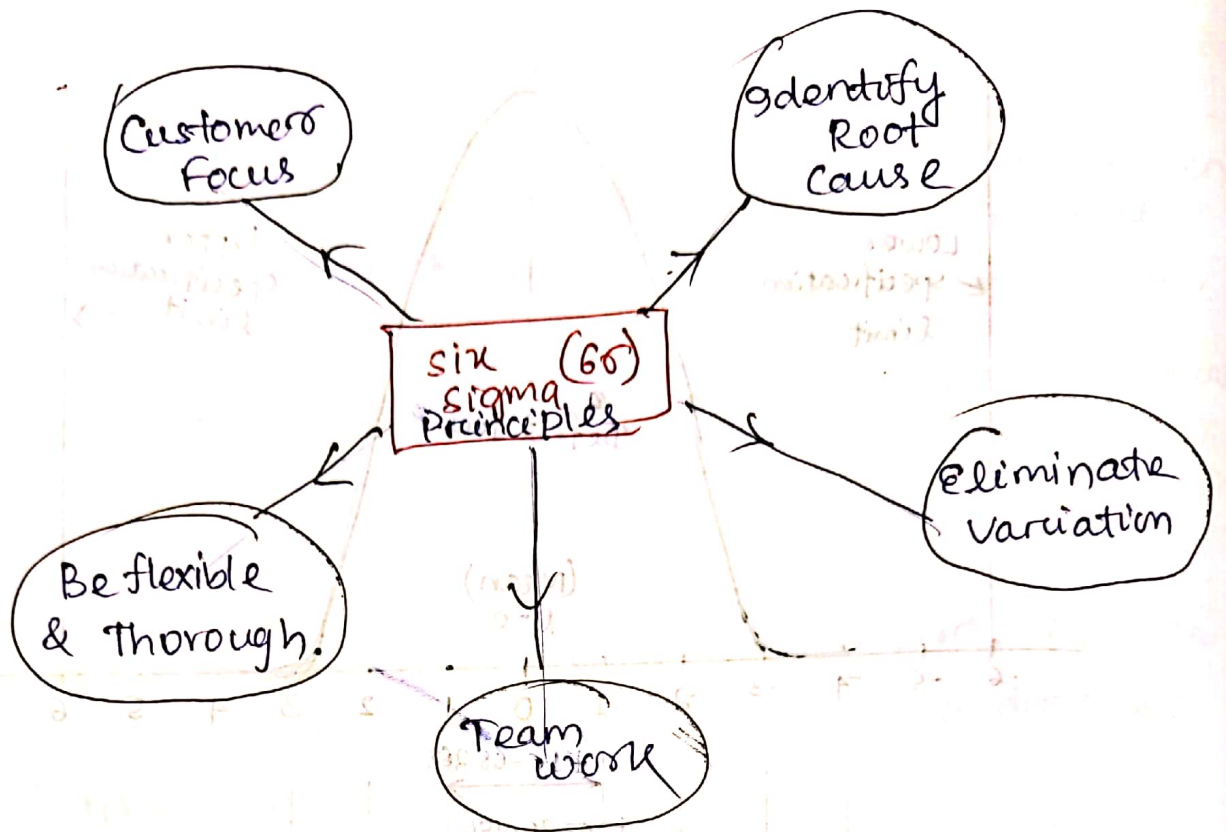 Customer
Focus
Identify
Root
Cause
Six (6σ)
Sigma
Principles
Eliminate
Variation
Be flexible
& Thorough.
Team
work